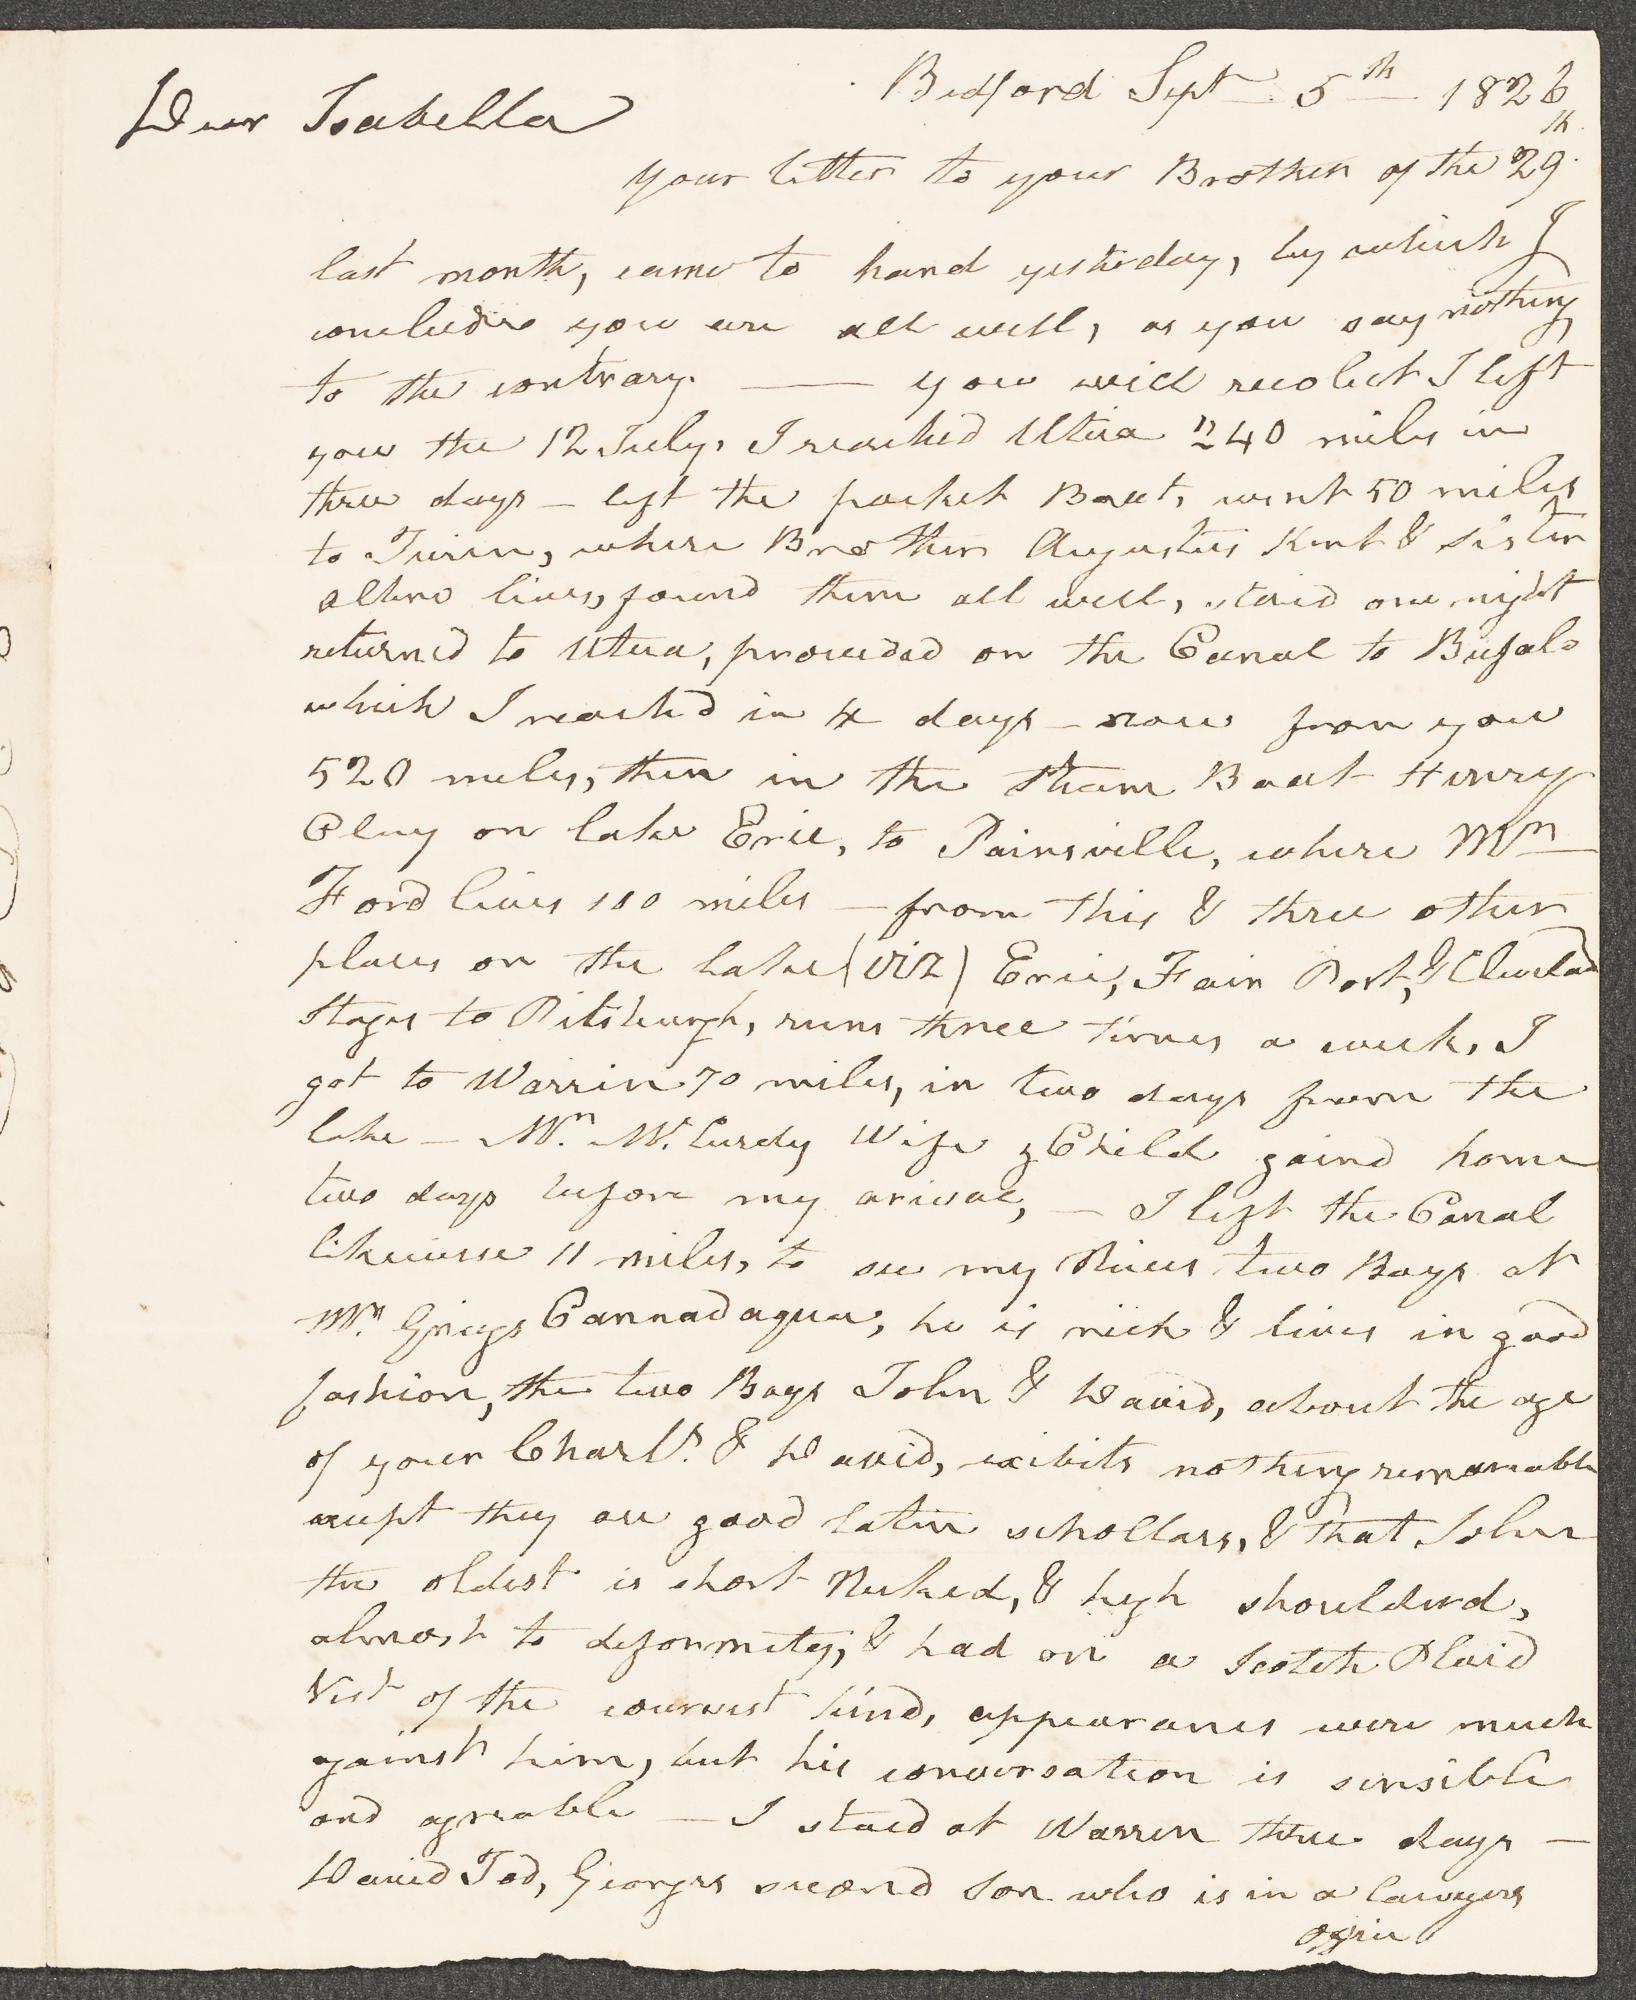 Bedford Sept 5th 1826
Dear Isabella
your letter to your Brother of the 29th
last month, came to hand yesterday, by which I
conclude you are all well, as you say nothing
to the contrary. — you will recolect I left
you the 12 July, I reached Utica 240 miles in
three days — left the packet Boat, went 50 miles
to Turin, where Brother Augustus Kent & sister
lives, found them all well, staid one night
returned to Utica, proceeded on the Canal to Bufalo
which I reachd in 4 days — now from you
520 miles, then in the Steam Boat Henry
Clay on lake Erie, to Painsville, where Mr
Ford lives 180 miles — from this & three other
places on the lake (viz) Erie, Fair Port, & Cleveland
stages to Pitsburgh, runs three times a week, I
got to Warrin 70 miles, in two days from the
lake — Mr. McCurdy Wife & Child gaind home
two days before my arival, — I left the Canal
likewise 11 miles, to see my Nieces two Boys at
Mr. Griegs Cannadagua, he is rich & lives in good
fashion, the two Boys John & David, about the age
of your Charls. & David, exibits nothing remarkable
except they are good latin schollars, & that John
the oldest is short Necked, & high shoulderd,
almost to deformity, & had on a Scotch Plaid
Vest of the coursest kind, appearances were much
against him, but his conversation is sensible
and agreable — I staid at Warren three days —
David Tod, Georges second son who is in a lawyers
office